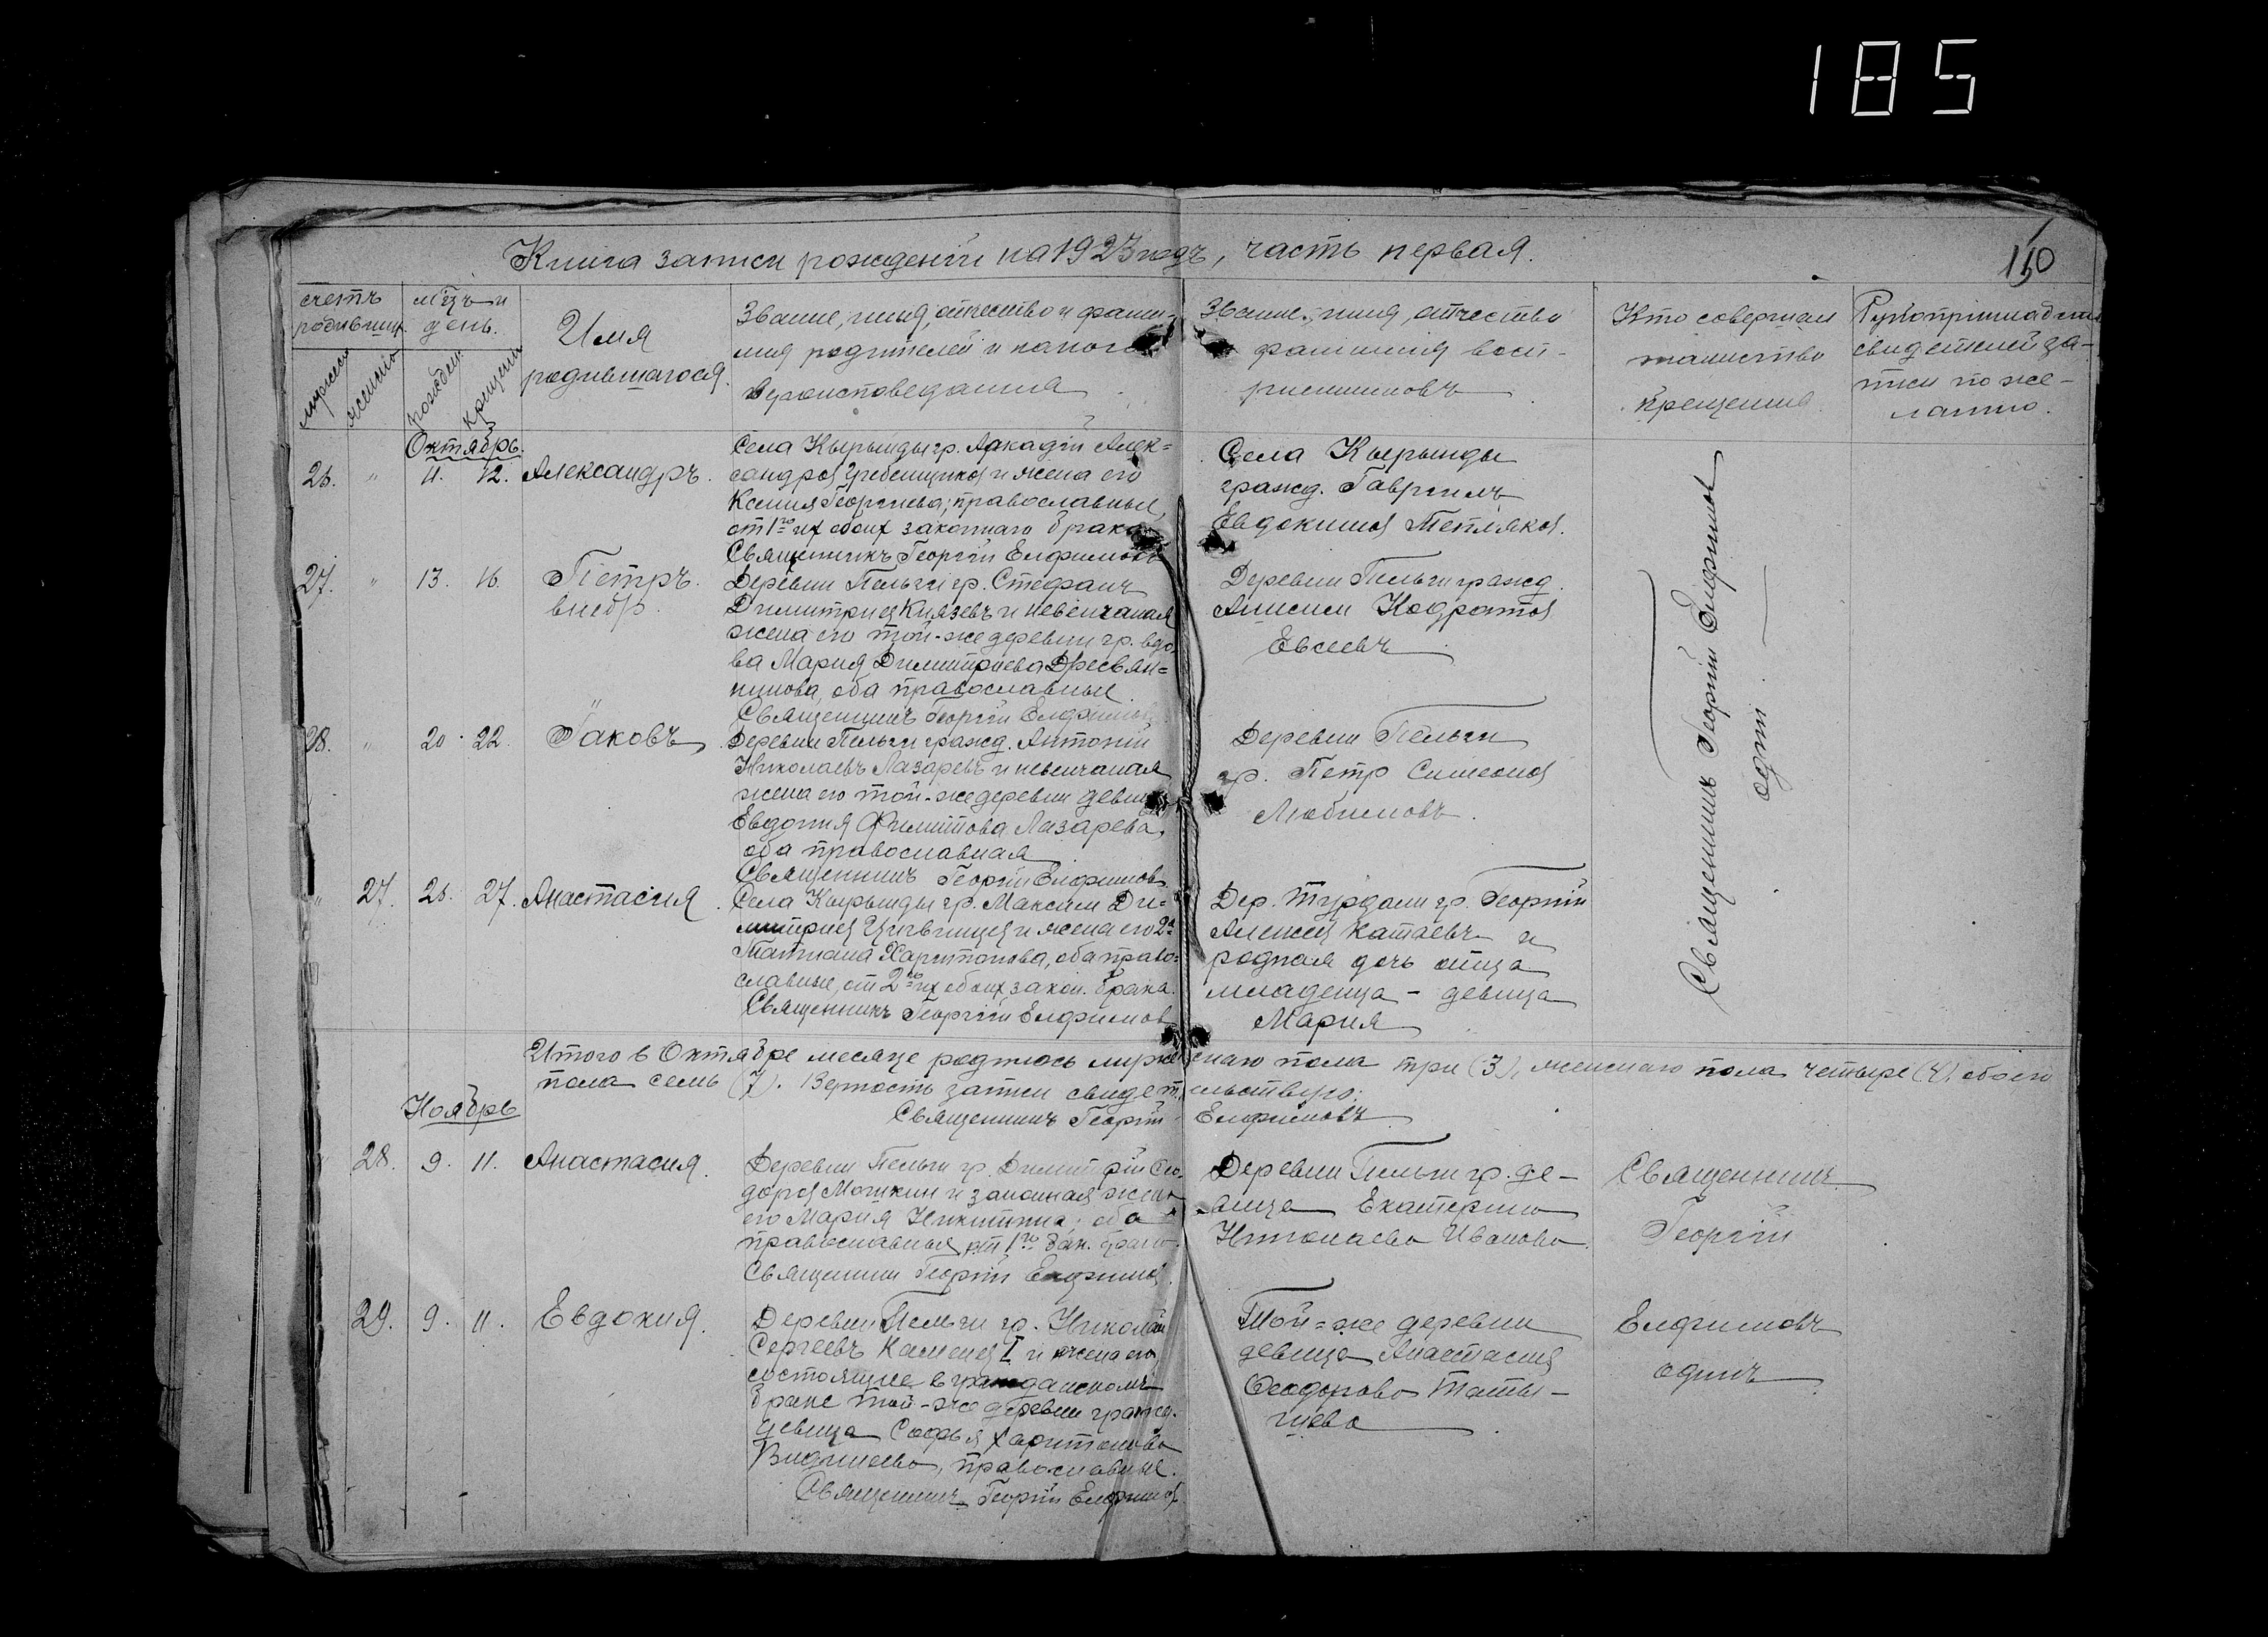 185
Книга записи рожденій на 1923 годъ, часть первая.
150
счетъ родивших.
мужеск
женско
мѣцъ и день.
рожден.
крещени
Имя родившагося.
Званіе, имя, отчество и фами-
лия родителей и какого
вероисповедания
Звание, имя, отчество
фамилия восп-
риемниковъ
Кто совершал
таинство
крещения
Рукоприкладст
свидетелей за-
писи по же-
ланию.
Октябрь.
26. " 11. 12. Александръ.
Села Кырынды гр. Аркадій Алек-
сандров Гребенщиков и жена его
Ксения Георгиева; православные,
от 1го их обоих законнаго брака
Священникъ Георгій Елфимовъ
Села Кырынды
гражд. Гавриилъ
Евдокимов Тепляков.
27. " 13. 16. Петръ.
внебр.
Деревни Пельги гр. Стефанъ
Димитриев Князевъ и невенчаная
жена его той-же деревни гр. вдо
ва Мария Димитриева Дресвян-
никова, оба православные.
Священникъ Георгій Елфимов
Деревни Пельги гражд.
Анисим Кодратов
Евсеевъ
28. " 20. 22. Іаковъ.
Деревни Пельги гражд. Антоній
Николаевъ Лазаревъ и невенчаная
жена его той-же деревни девица
Евдокия Филиппова Лазарева,
оба православная
Священникъ Георгій Елфимовъ
Деревни Пельги
гр. Петр Симеонов
Любимовъ.
" 27. 26. 27. Анастасия.
Села Кырынды гр. Максим Ди-
митриев и жена его 2я
Татиана Харитонова, оба право-
славные, от 2го их обоих закон. брака.
Священникъ Георгій Елфимов
Дер. гр. Георгій
Алексеев Катаевъ и
родная дочь отца
младенца - девица
Мария
Священникъ Георгій Елфимов
один.
Итого в Октябре месяце родилось мужескаго пола три (3), женскаго пола четыре (4), обоего
пола семь (7). Верность записи свидетельствую:
Священникъ Георгій Елфимовъ
Ноябрь
28. 9. 11. Анастасия.
Деревни Пельги гр. Димитрій Фео-
доров Мошкин и законная жена
его Мария Никитина; оба
православныя, от 1го зак. брака.
Священник Георгій Елфимов.
Деревни Пельги гр. де-
вица Екатерина
Николаева Иванова.
Священникъ
Георгій
29. 9. 11. Евдокия.
Деревни Пельги гр. Николай
Сергеевъ Каменев I и жена его
состоящие в гражданскомъ
браке той-же деревни гражд.
девица Софья Харитонова
православные.
Священникъ Георгій Елфимов
Той=же деревни
девица Анастасия
Феодорова Таты-
щева
Елфимовъ
одинъ